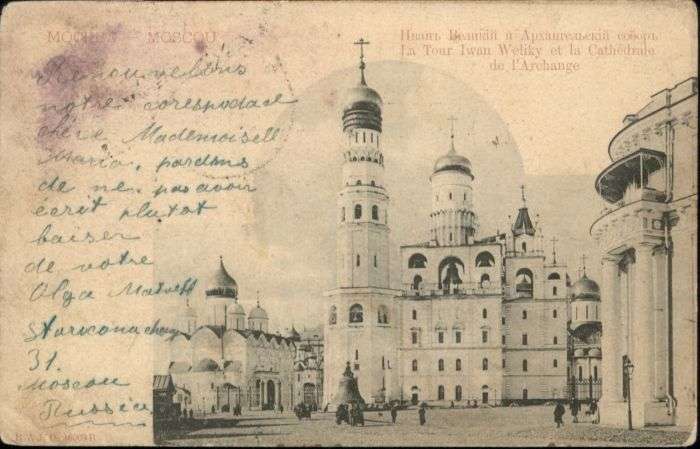 МОСКВА MOSCOU
Иванъ Великій и Архангельскій соборъ
La Tour Iwan Weliky et la Cathédrale
de l'Archange
Renouvelons
notre corespodace
chère Mademoisell
Maria, pardons
de ne, pas avoir
écrit plutot
baiser
de votre
Olga
31.
Moscou
Russia